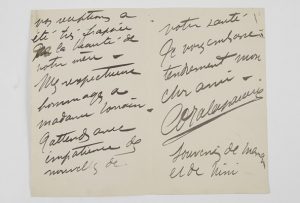 vos réceptions a
été très frappée
de la beauté de
votre mère.
Mes respectueux
hommages a
madame
J'attends avec
impatience des
nouvelles de
votre santé
Je vous embrasse
tendrement mon
cher ami -
Souvenirs de
et de Nini